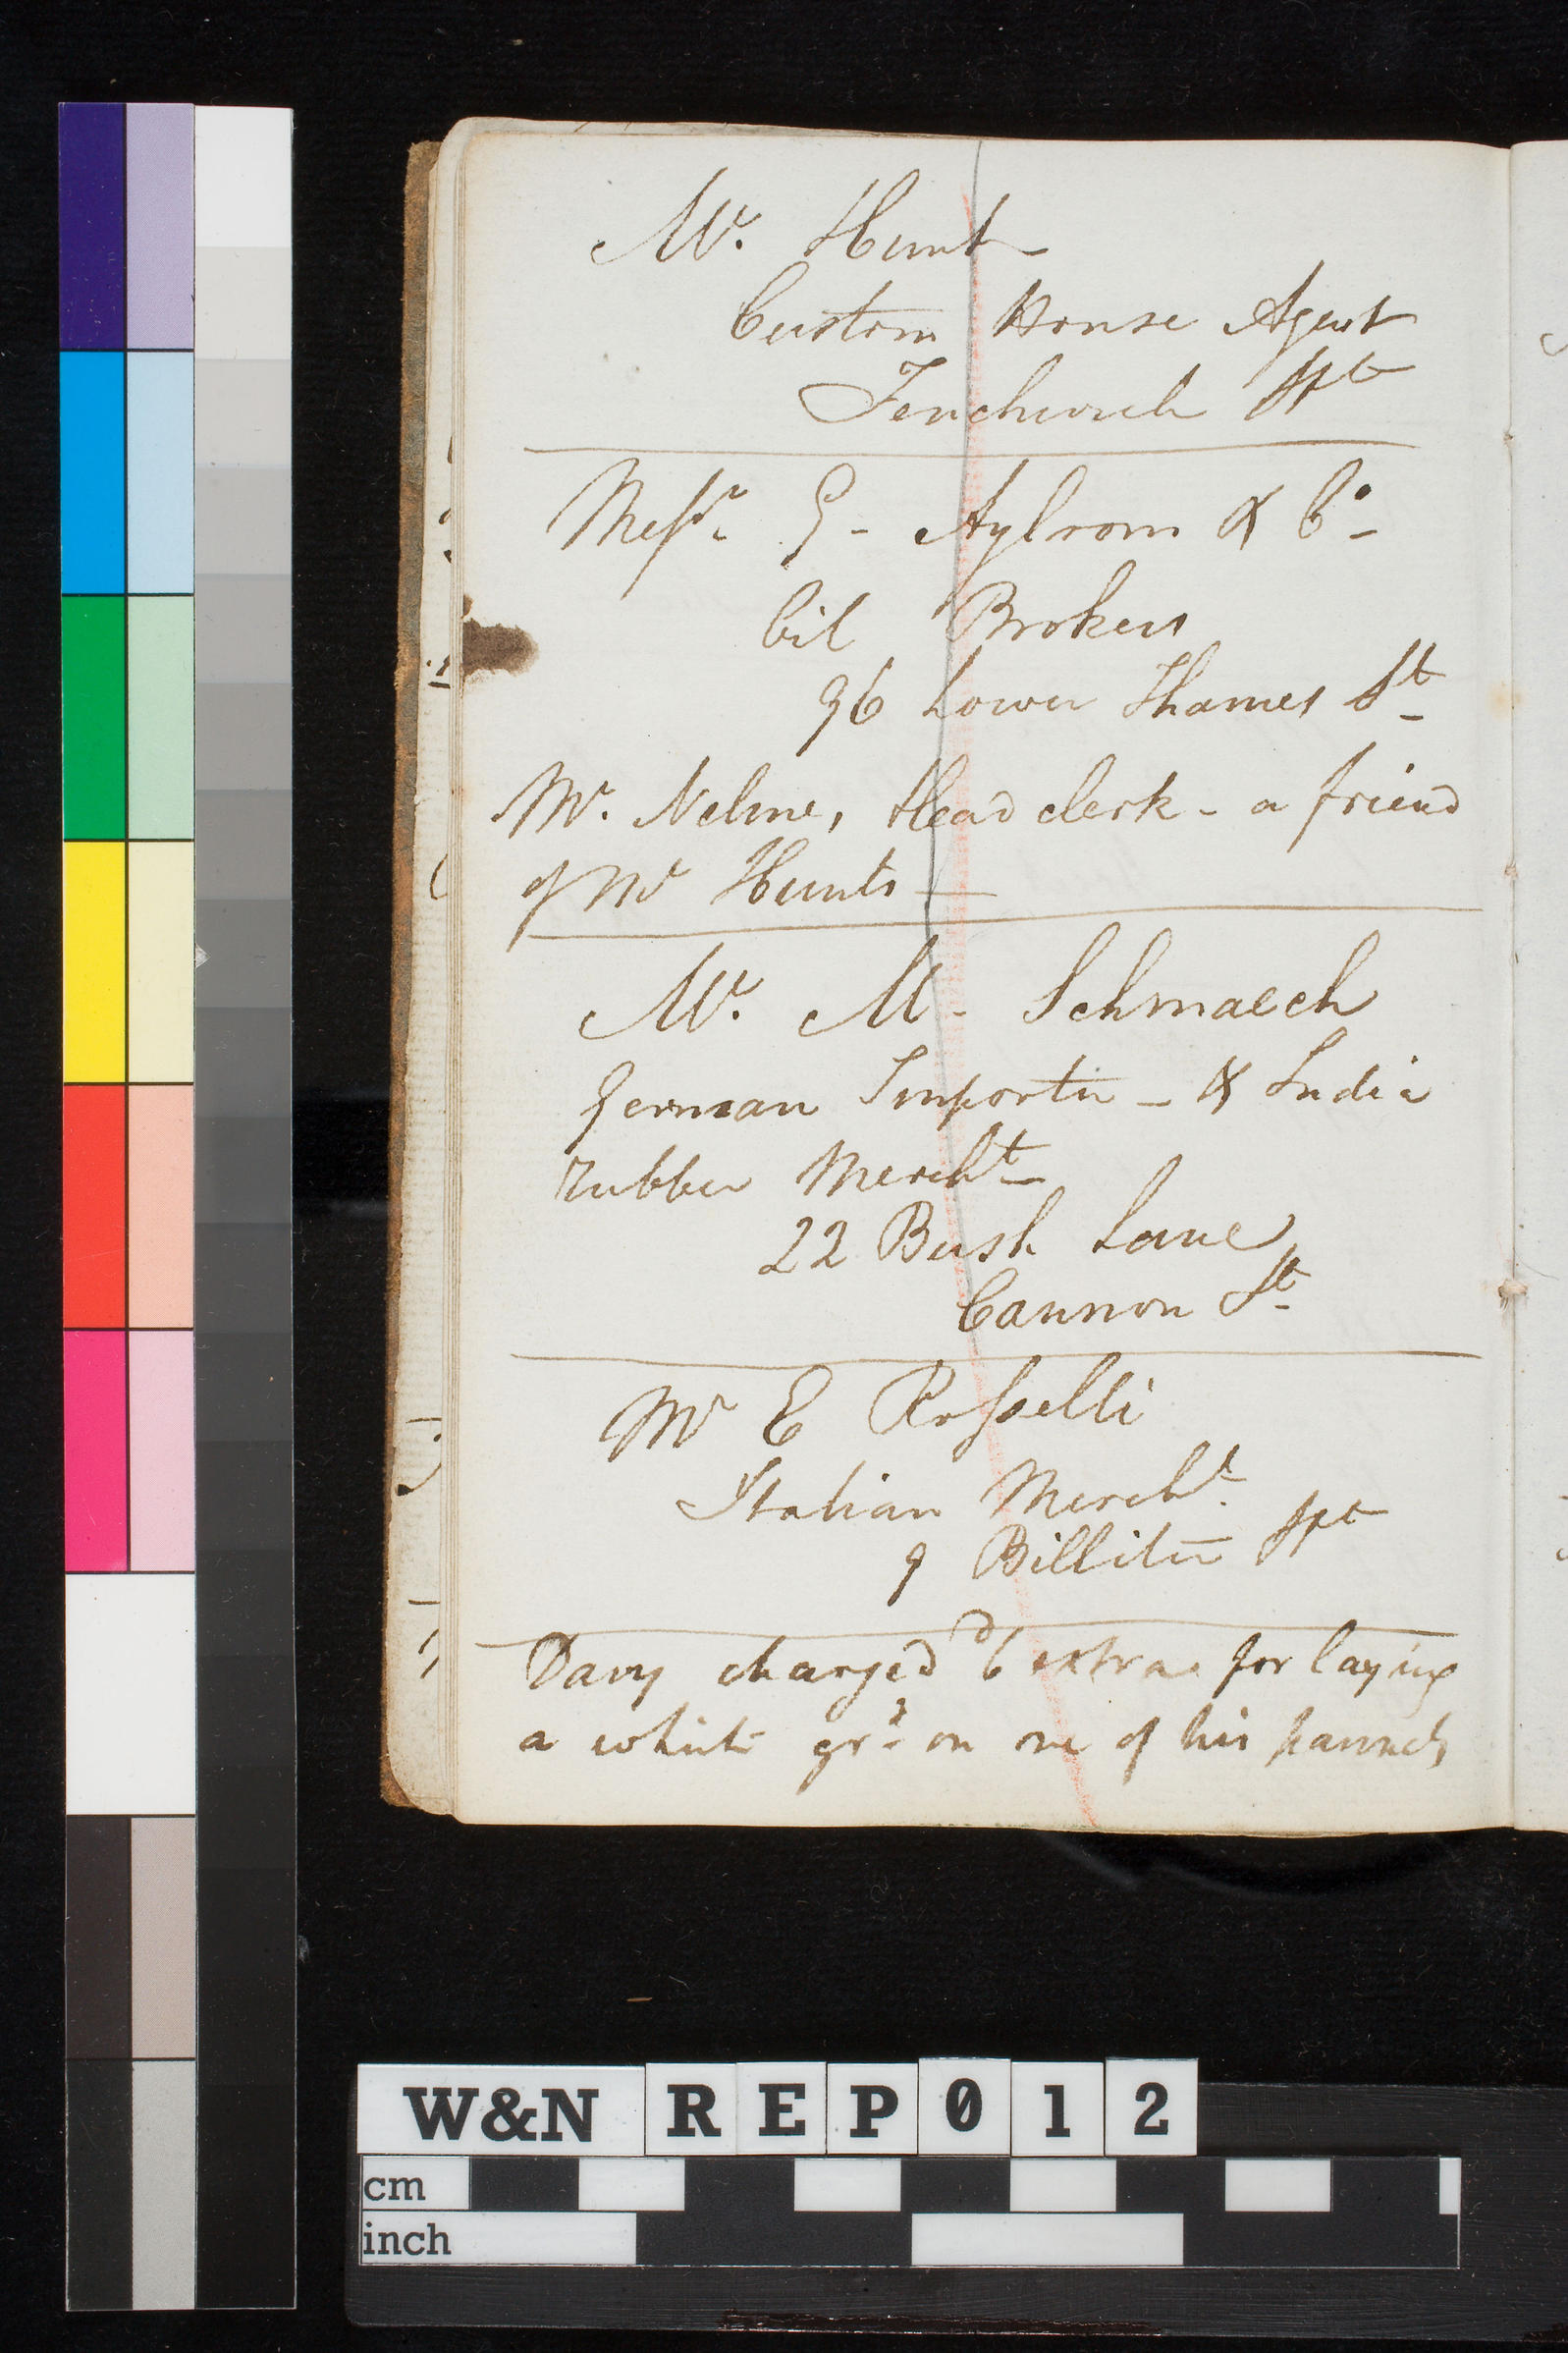 Mr. Hunt
Custom House Agent
Fenchurch Stt
Messrs. G - Aylsom & Co -
Oil Brokers
96 Lower Thames St
Mr. Nelme, Head clerk - a friend
of Mr Hunts
Mr. M - Schmaech
German Importer - & India
rubber Mercht
22 Bush Lane
Cannon St
Mr E Rosselli
Italian Mercht.
9 Billiter Stt
Davy charged 6d extra for laying
a white grd on one of his pannels
W&N REP012
cm
inch